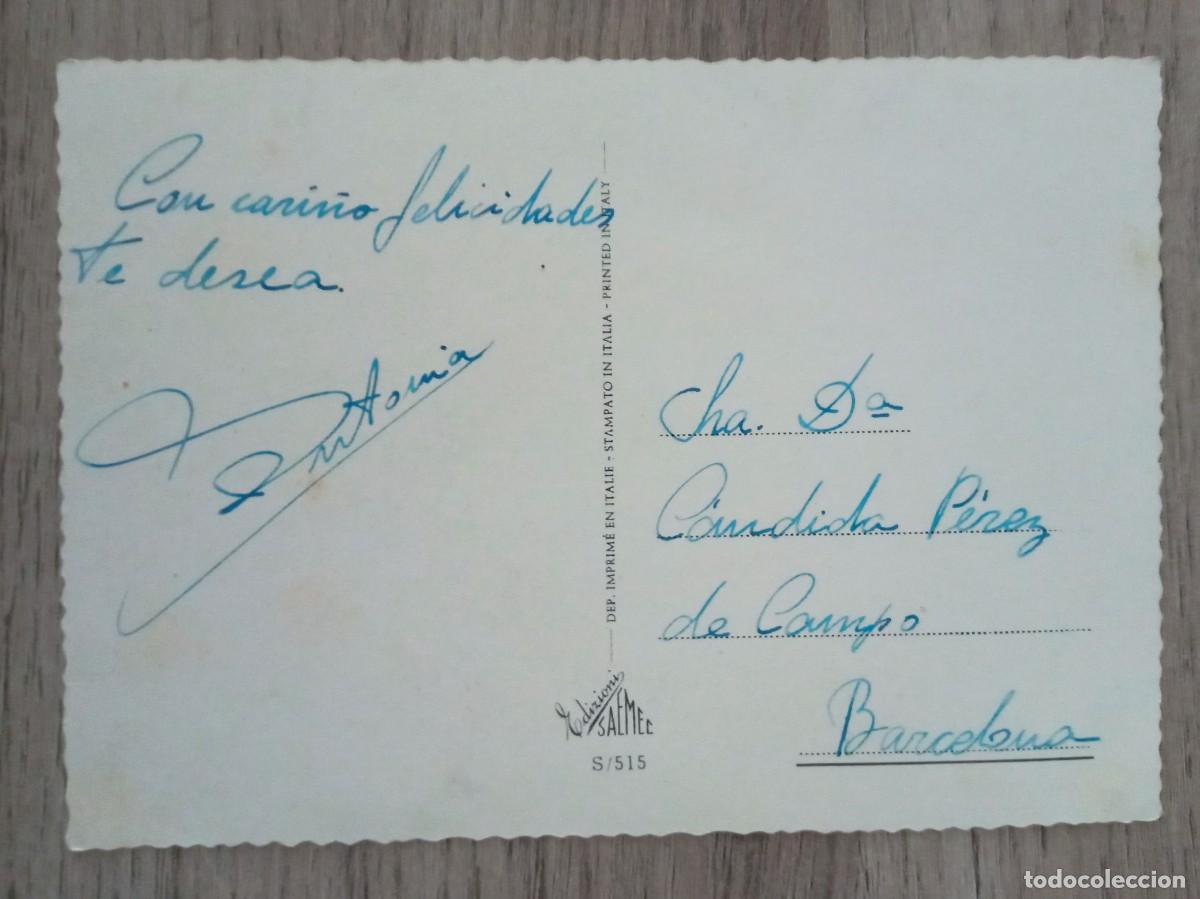 Con cariño felicidades
te desea.
Antonia
DEP. IMPRIMÉ EN ITALIE - STAMPATO IN ITALIA - PRINTED IN ITALY
Edizioni
SAEMEC
S/515
Sra. Dª
Cándida Pérez
de Campo
Barcelona
todocoleccion